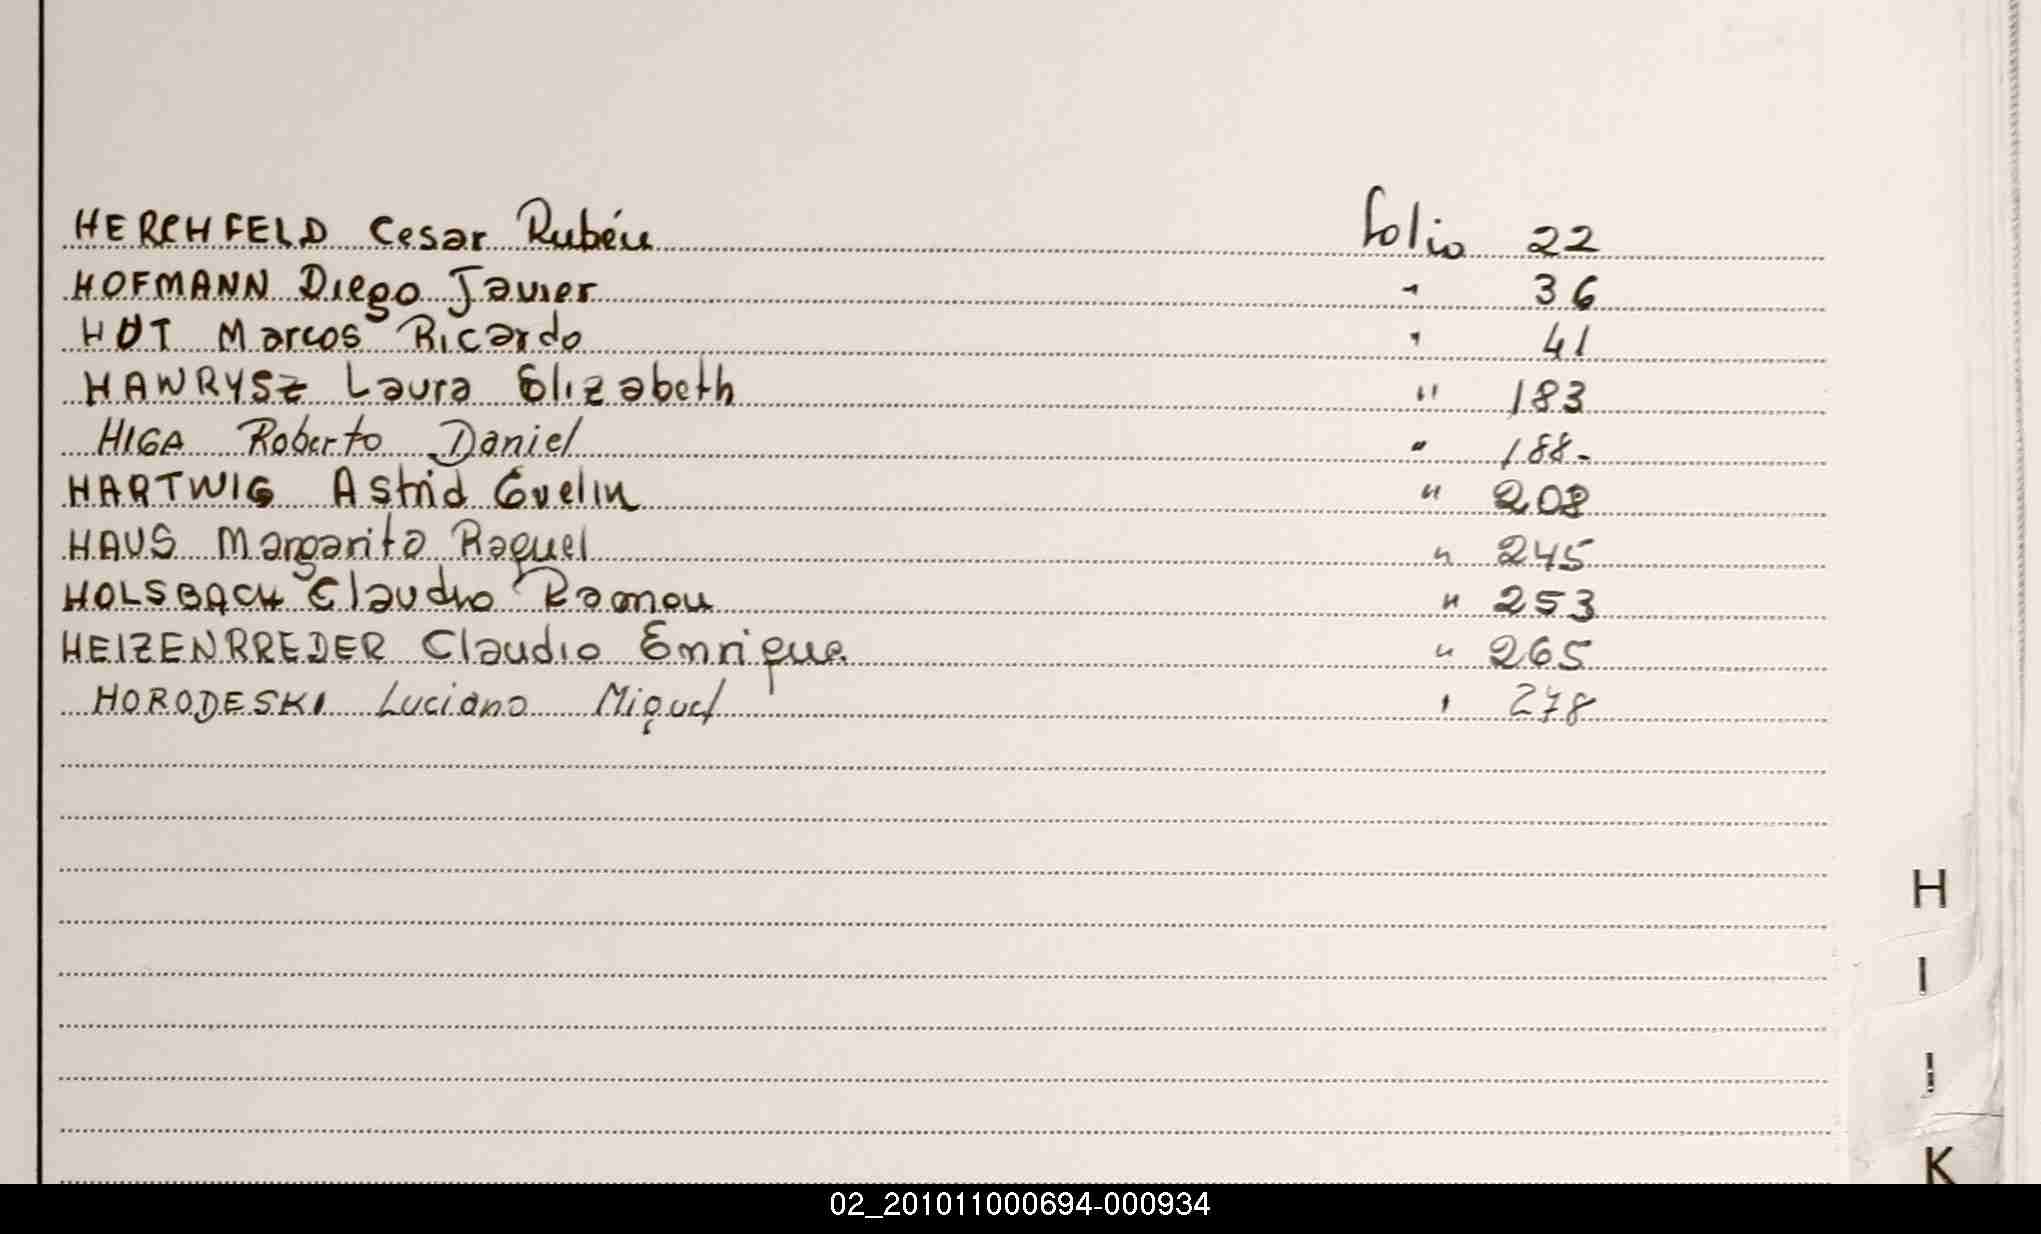 HERCHFELD Cesar Rubén folio 22
HOFMANN Diego Javier " 36
HUT Marcos Ricardo " 41
HAWRYSZ Laura Elizabeth " 183
HIGA Roberto Daniel " 188-
HARTWIG Astrid Evelin " 208
HAUS Margarita Raquel " 245
HOLSBACH Claudio Ramon " 253
HEIZENRREDER Claudio Enrique " 265
HORODESKI Luciano Miguel " 278
H
I
J
K
02_201011000694-000934